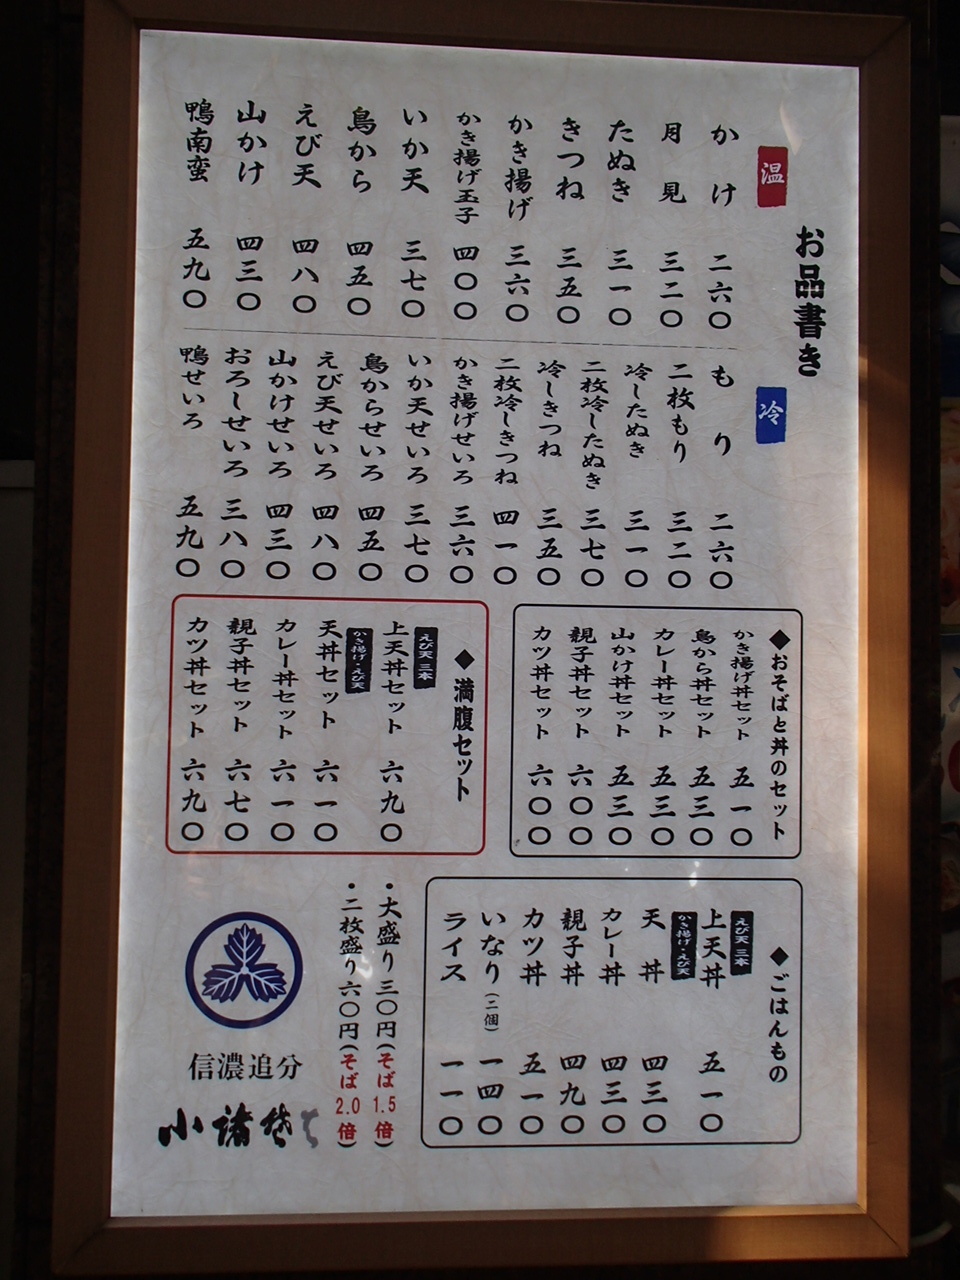 お品書き
温
かけ 二六〇
月見 三二〇
たぬき 三一〇
きつね 三五〇
かき揚げ 三六〇
かき揚げ玉子 四〇〇
いか天 三七〇
鳥から 四五〇
えび天 四八〇
山かけ 四三〇
鴨南蛮 五九〇
冷
もり 二六〇
二枚もり 三二〇
冷したぬき 三一〇
二枚冷したぬき 三七〇
冷しきつね 三五〇
二枚冷しきつね 四一〇
かき揚げせいろ 三六〇
いか天せいろ 三七〇
鳥からせいろ 四五〇
えび天せいろ 四八〇
山かけせいろ 四三〇
おろしせいろ 三八〇
鴨せいろ 五九〇
◆おそばと丼のセット
かき揚げ丼セット 五一〇
鳥から丼セット 五三〇
カレー丼セット 五三〇
山かけ丼セット 五三〇
親子丼セット 六〇〇
カツ丼セット 六〇〇
◆満腹セット
えび天 三本
上天丼セット 六九〇
かき揚げ・えび天
天丼セット 六一〇
カレー丼セット 六一〇
親子丼セット 六七〇
カツ丼セット 六九〇
◆ごはんもの
えび天 三本
上天丼 五一〇
かき揚げ・えび天
天丼 四三〇
カレー丼 四三〇
親子丼 四九〇
カツ丼 五一〇
いなり(二個) 一四〇
ライス 一一〇
・大盛り三〇円(そば1.5倍)
・二枚盛り六〇円(そば2.0倍)
信濃追分
小諸そば